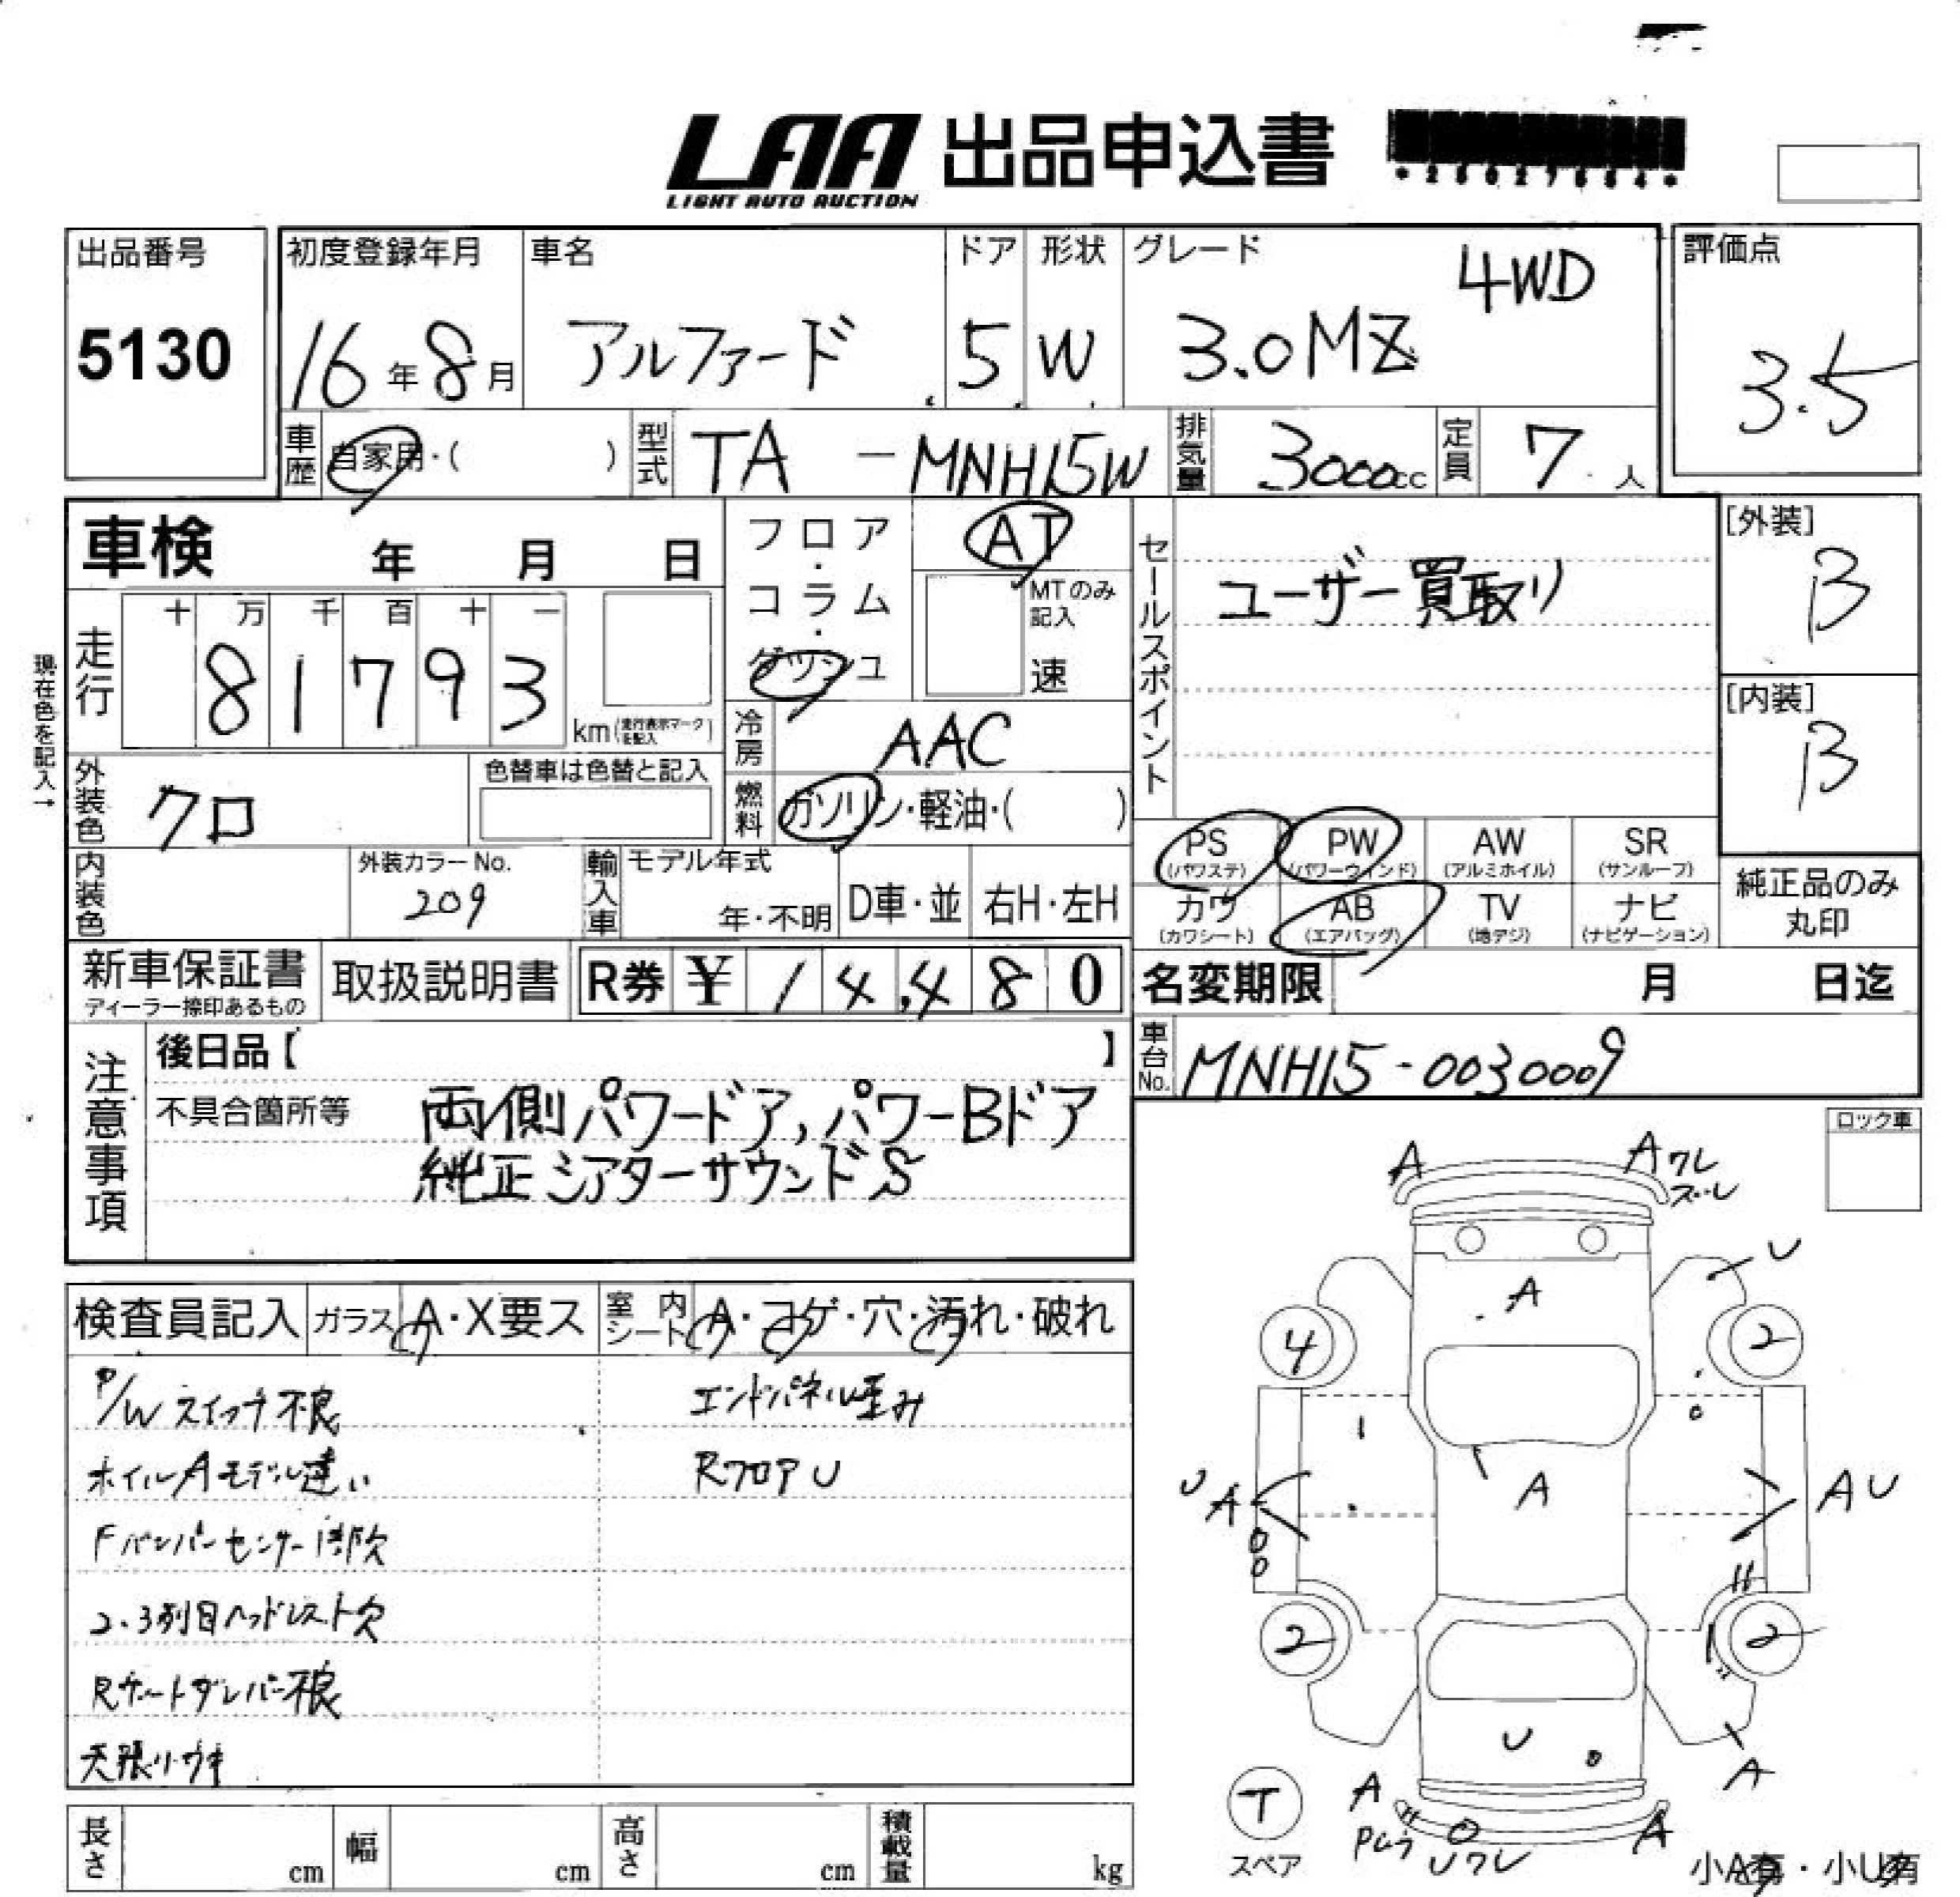 LAA 出品申込書
LIGHT AUTO AUCTION
出品番号
5130
初度登録年月
16年8月
車名
アルファード
ドア
5
形状
W
グレード
4WD
3.0MZ
評価点
3.5
車歴 自家用・( )
型式 TA - MNH15W
排気量 3000cc
定員 7人
車検 年 月 日
フロア・コラム・ダッシュ
AT
MTのみ記入
速
セールスポイント
ユーザー買取り
[外装]
B
[内装]
B
現在色を記入→
走行
十 万 千 百 十 一
8 1 7 9 3
km(走行表示マークを記入)
冷房 AAC
外装色 クロ
色替車は色替と記入
燃料 ガソリン・軽油・( )
PS (パワステ)
PW (パワーウィンド)
AW (アルミホイル)
SR (サンルーフ)
カワ (カワシート)
AB (エアバッグ)
TV (地デジ)
ナビ (ナビゲーション)
純正品のみ
丸印
内装色
外装カラーNo.
209
輸入車
モデル年式
年・不明
D車・並
右H・左H
新車保証書
ディーラー捺印あるもの
取扱説明書
R券 ¥ 14,480
名変期限 月 日迄
車台No. MNH15-0030009
注意事項
後日品【 】
不具合箇所等 両側パワードア,パワーBドア
純正シアターサウンドS
ロック車
検査員記入
ガラス A・X要ス
室内シート A・コゲ・穴・汚れ・破れ
P/Wスイッチ不良
エンドパネル歪み
ホイルAモデル違い
RフロアU
Fバンパーセンサー1部欠
2.3列目ヘッドレスト欠
Rゲートダンパー不良
天張りウキ
A
Aワレ
ズレ
U
A
4
2
U A
A
A U
2
2
U
A
T
スペア
A
A
Uワレ
小A有・小U有
長さ cm
幅 cm
高さ cm
積載量 kg